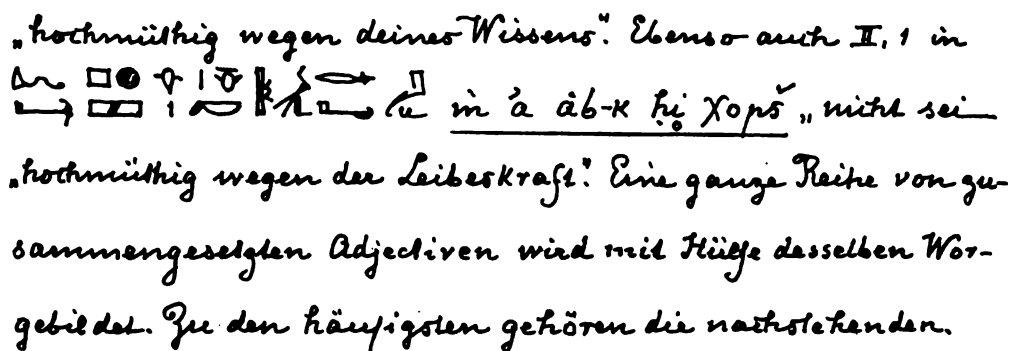 „hochmüthig wegen deines Wissens“. Ebenso auch II, 1 in
m 'a åb-k ḥi χopš „nicht sei
„hochmüthig wegen der Leibeskraft“. Eine ganze Reihe von zu-
sammengesetzten Adjectiven wird mit Hülfe desselben Wor-
gebildet. Zu den häufigsten gehören die nachstehenden.